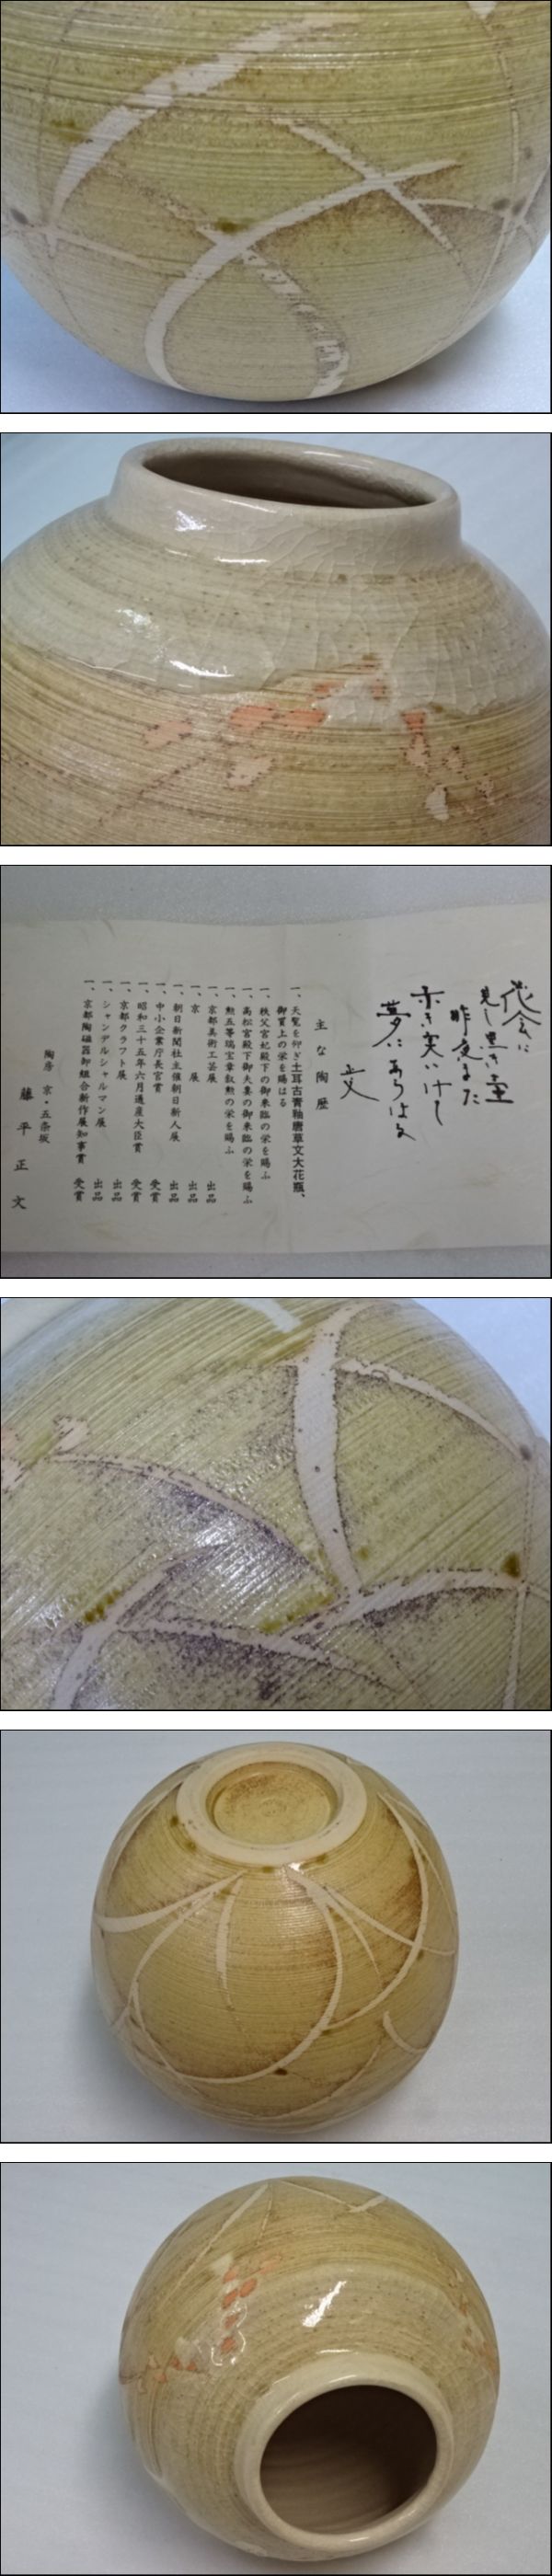 茶会に
見し黒き壷
昨夜また
赤き実いけし
夢にあらはる
正文
主な陶歴
一、天覧を仰ぎ土耳古青釉唐草文大花瓶、
御買上の栄を賜はる
一、秩父宮妃殿下の御来臨の栄を賜ふ
一、高松宮殿下御夫妻の御来臨の栄を賜ふ
一、勲五等瑞宝章叙勲の栄を賜ふ
一、京都美術工芸展 出品
一、京展 出品
一、朝日新聞社主催朝日新人展 出品
一、中小企業庁長官賞 受賞
一、昭和三十五年六月通産大臣賞 受賞
一、京都クラフト展 出品
一、シャンデルシャルマン展 出品
一、京都陶磁器卸組合新作展知事賞 受賞
陶房 京・五条坂
藤平正文